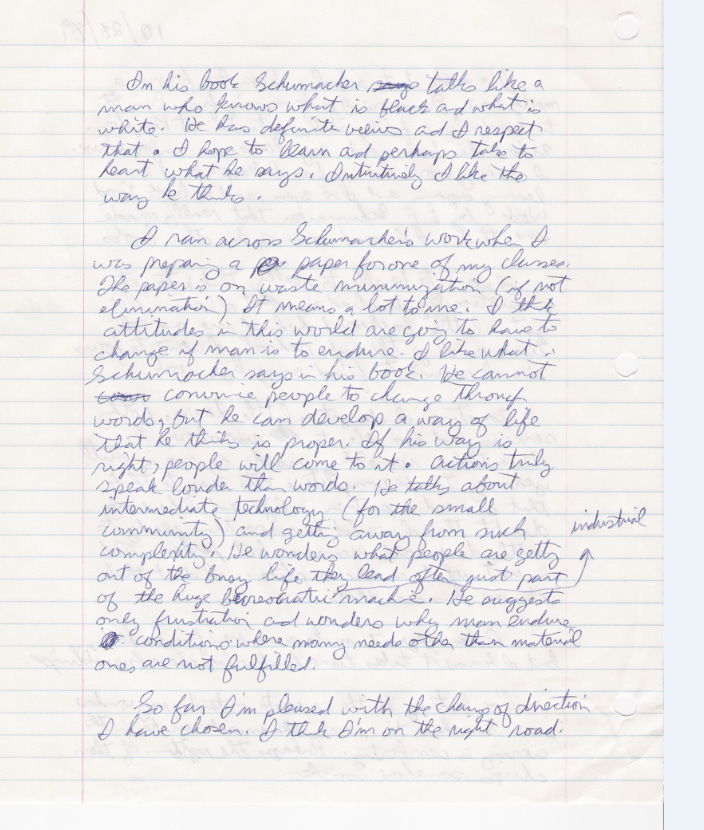 In his book Schumacher says talks like a
man who knows what is black ad what is
white. He has definite veiws ad I respect
that. I hope to learn ad perhaps take to
heart what he says. Intuitively I like the
way he thinks.
I ran across Schumacher's work when I
was preparing a paper for one of my classes.
The paper is on waste minimization (if not
elimination) It means a lot to me. I think
attitudes in this world are going to have to
change if man is to endure. I like what
Schumacher says in his book. He cannot
convince people to change through
words, but he can develop a way of life
that he thinks is proper. If his way is
right, people will come to it. Actions truly
speak louder than words. He talks about
intermediate technology (for the small
community) and getting away from such
industrial
complexity. He wonders what people are getting
out of the busy life they lead often just part
of the huge bureocratic machine. He suggests
only frustration ad wonders why man endure
conditions where many needs other than material
ones are not fulfilled.
So far I'm pleased with the change of direction
I have chosen. I think I'm on the right road.